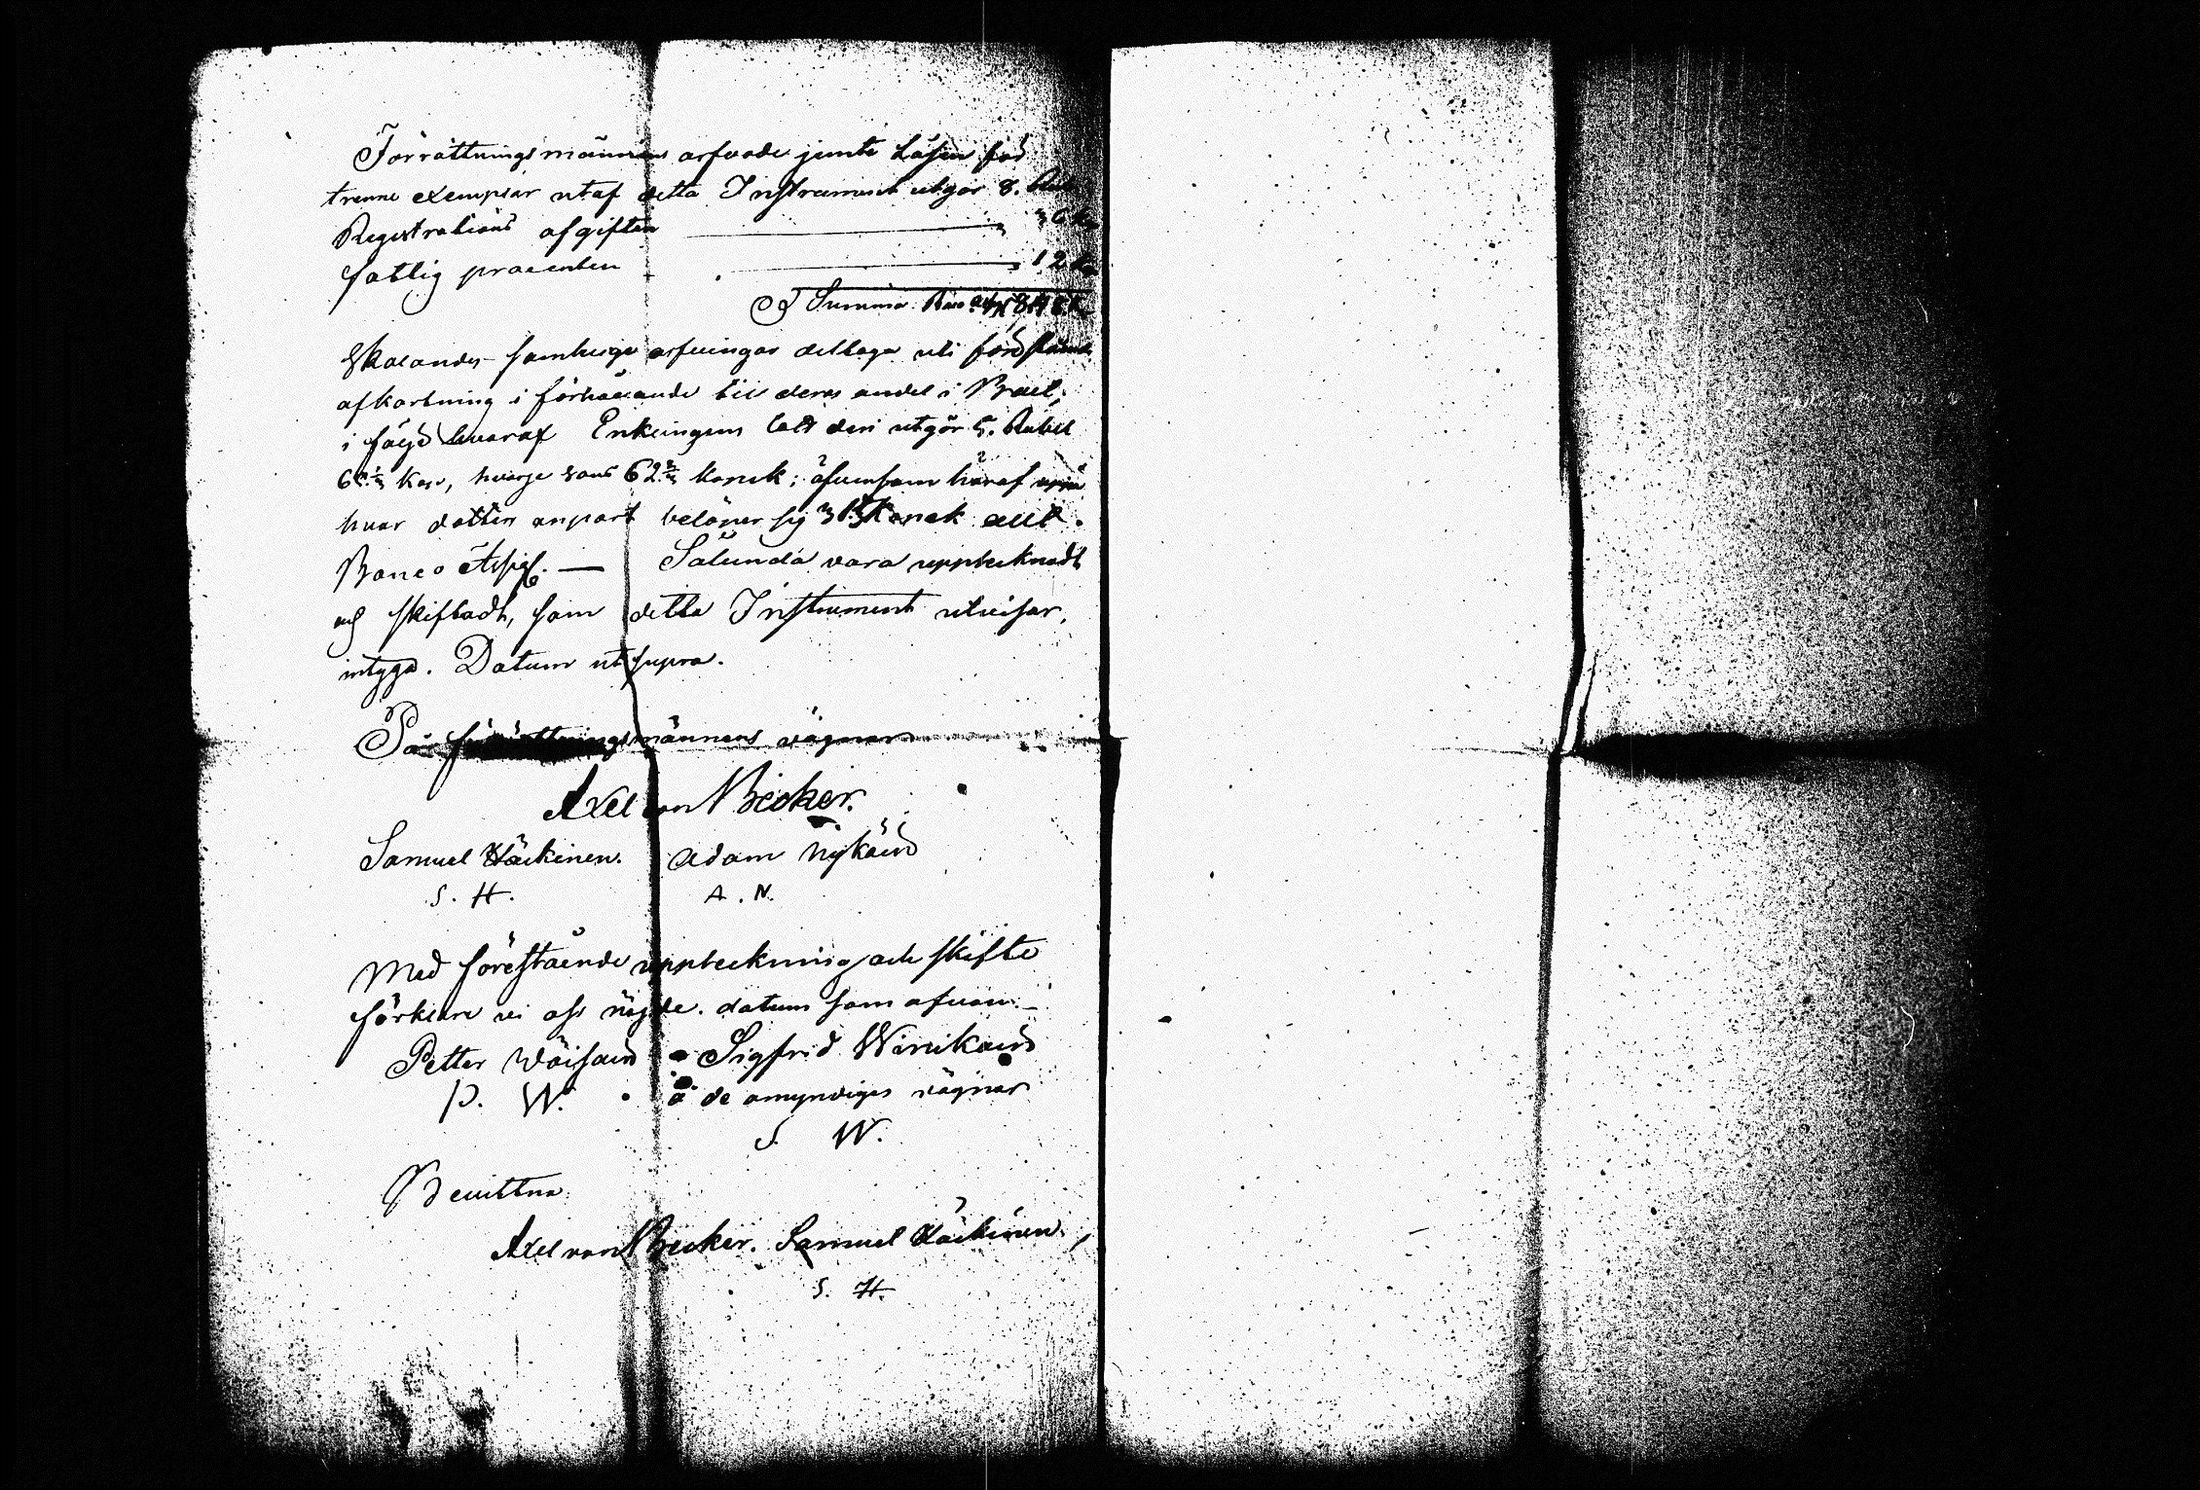 Förrättningsmännens arfvode jemte Lösen för
trenne exemplar utaf detta Instrument utgör 8. Rub
Registrations afgiften 36 k
fattig procenten 12 k
Summa Banco
Skolandes samtelige arfvingar deltaga uti förestående
afkortning i förhållande till deras andel i Boet,
i följd hvaraf Enkeingens lott deri utgör 5. Rubel
kop, hvarje sons 62 2/3 kopek; äfvensom häraf
hvar dotters anpart belöper sig Kopek allt.
Banco Assig. — Sålunda vara upptecknadt
och skiftadt, som detta Instrument utvisar,
intyga. Datum ut supra.
På förrättningsmännens vägnar
Axel von Becker.
Samuel Häikinen. Adam Nykäin
S. H. A. N.
Med förestående uppteckning och skifte
förklare vi oss nögde. datum som ofvan.
Petter Wäisäin Sigfrid Winikain
P. W. å de omyndiges vägnar
S. W.
Bevittna:
Axel von Becker. Samuel Häikinen,
S. H.